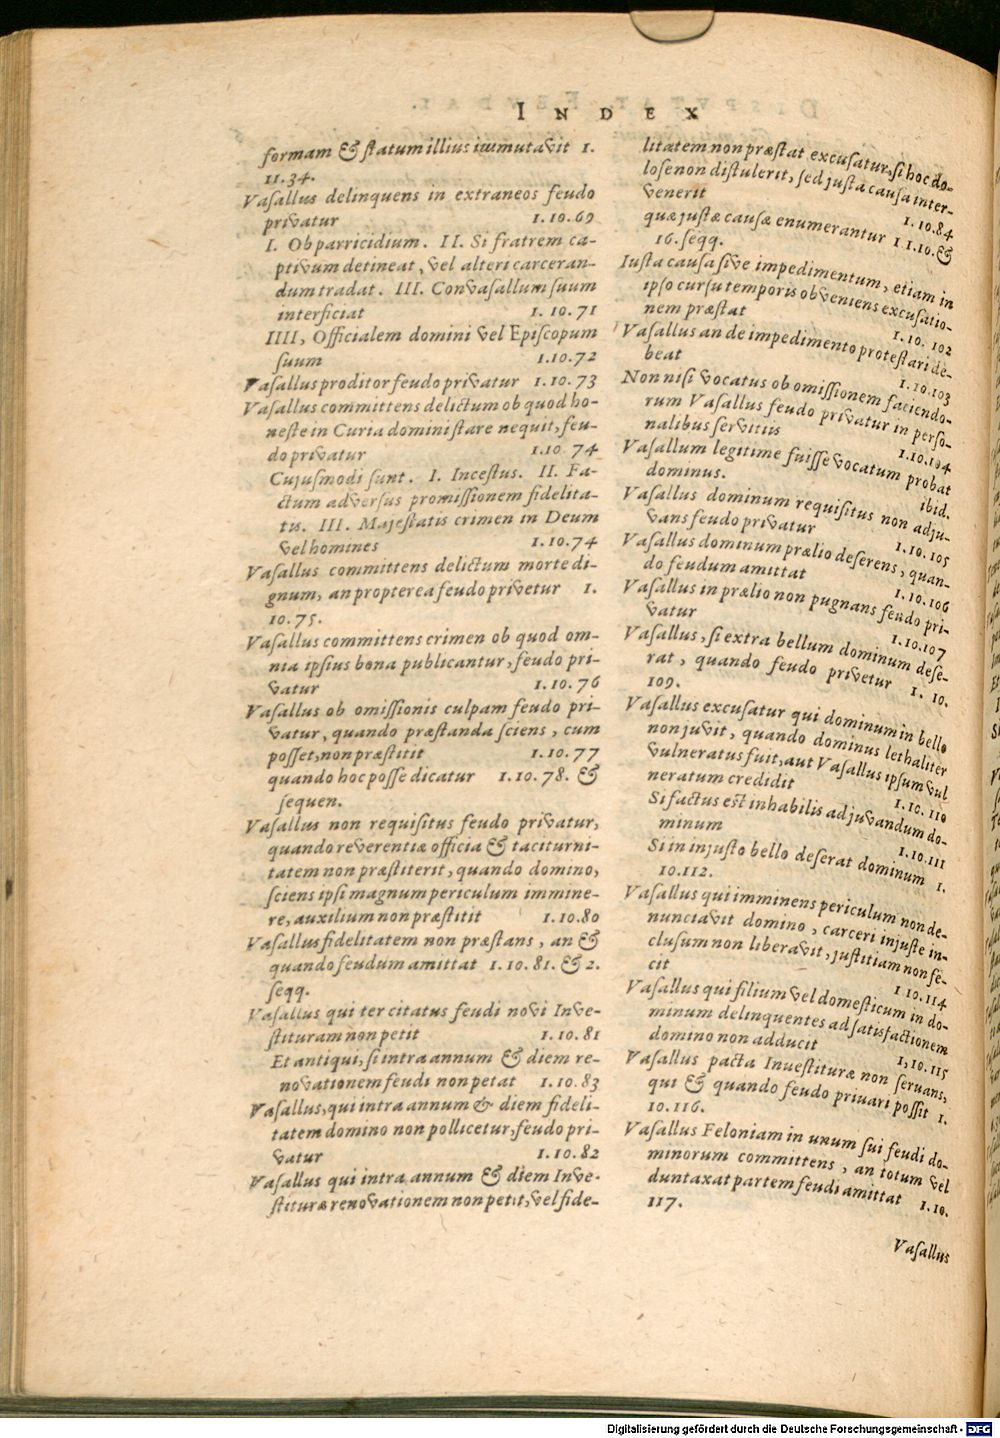 INDEX
formam & ſtatum illius immutavit 1.
11.34.
Vaſallus delinquens in extraneos feudo
privatur 1.10.69
I. Ob parricidium. II. Si fratrem ca-
ptivum detineat, vel alteri carceran-
dum tradat. III. Convaſallum ſuum
interficiat 1.10.71
IIII, Officialem domini vel Epiſcopum
ſuum 1.10.72
Vaſallus proditor feudo privatur 1.10.73
Vaſallus committens delictum ob quod ho-
neſte in Curia domini ſtare nequit, feu-
do privatur 1.10 74
Cujuſmodi ſunt. I. Inceſtus. II. Fa-
ctum adverſus promiſſionem fidelita-
tis. III. Majeſtatis crimen in Deum
vel homines 1.10.74
Vaſallus committens delictum morte di-
gnum, an propterea feudo privetur 1.
10.75.
Vaſallus committens crimen ob quod om-
nia ipſius bona publicantur, feudo pri-
vatur 1.10.76
Vaſallus ob omiſſionis culpam feudo pri-
vatur, quando præſtanda ſciens, cum
poſſet, non præſtitit 1.10.77
quando hoc poſſe dicatur 1.10.78. &
ſequen.
Vaſallus non requiſitus feudo privatur,
quando reverentiæ officia & taciturni-
tatem non præſtiterit, quando domino,
ſciens ipſi magnum periculum immine-
re, auxilium non præſtitit 1.10.80
Vaſallus fidelitatem non præſtans, an &
quando feudum amittat 1.10.81. & 2.
ſeqq.
Vaſallus qui ter citatus feudi novi Inve-
ſtituram non petit 1.10.81
Et antiqui, ſi intra annum & diem re-
novationem feudi non petat 1.10.83
Vaſallus, qui intra annum & diem fideli-
tatem domino non pollicetur, feudo pri-
vatur 1.10.82
Vaſallus qui intra annum & diem Inve-
ſtituræ renovationem non petit, vel fide-
litatem non præſtat excuſatur, ſi hoc do-
loſe non diſtulerit, ſed juſta cauſa inter-
venerit 1.10.84
quæ juſtæ cauſæ enumerantur 1 1.10. &
16. ſeqq.
Iuſta cauſa ſive impedimentum, etiam in
ipſo curſu temporis obveniens excuſatio-
nem præſtat 1.10. 102
Vaſallus an de impedimento proteſtari de-
beat 1.10.103
Non niſi vocatus ob omiſſionem faciendo-
rum Vaſallus feudo privatur in perſo-
nalibus ſervitiis 1.10.104
Vaſallum legitime fuiſſe vocatum probat
dominus. ibid.
Vaſallus dominum requiſitus non adju-
vans feudo privatur 1.10.105
Vaſallus dominum prælio deſerens, quan-
do feudum amittat 1.10.106
Vaſallus in prælio non pugnans feudo pri-
vatur 1.10.107
Vaſallus, ſi extra bellum dominum deſe-
rat, quando feudo privetur 1. 10.
109.
Vaſallus excuſatur qui dominum in bello
non juvit, quando dominus lethaliter
vulneratus fuit, aut Vaſallus ipſum vul
neratum credidit 1.10.110
Si factus eſt inhabilis adjuvandum do-
minum 1.10.111
Si in injuſto bello deſerat dominum 1.
10.112.
Vaſallus qui imminens periculum non de-
nunciavit domino, carceri injuſte in-
cluſum non liberavit, juſtitiam non fe-
cit 1 10.114
Vaſallus qui filium vel domeſticum in do-
minum delinquentes ad ſatisfactionem
domino non adducit 1,10.115
Vaſallus pacta Inueſtituræ non ſeruans,
qui & quando feudo priuari poſſit 1.
10.116.
Vaſallus Feloniam in unum ſui feudi do-
minorum committens, an totum vel
duntaxat partem feudi amittat 1.10.
117.
Vaſallus
Digitalisierung gefördert durch die Deutsche Forschungsgemeinschaft - DFG